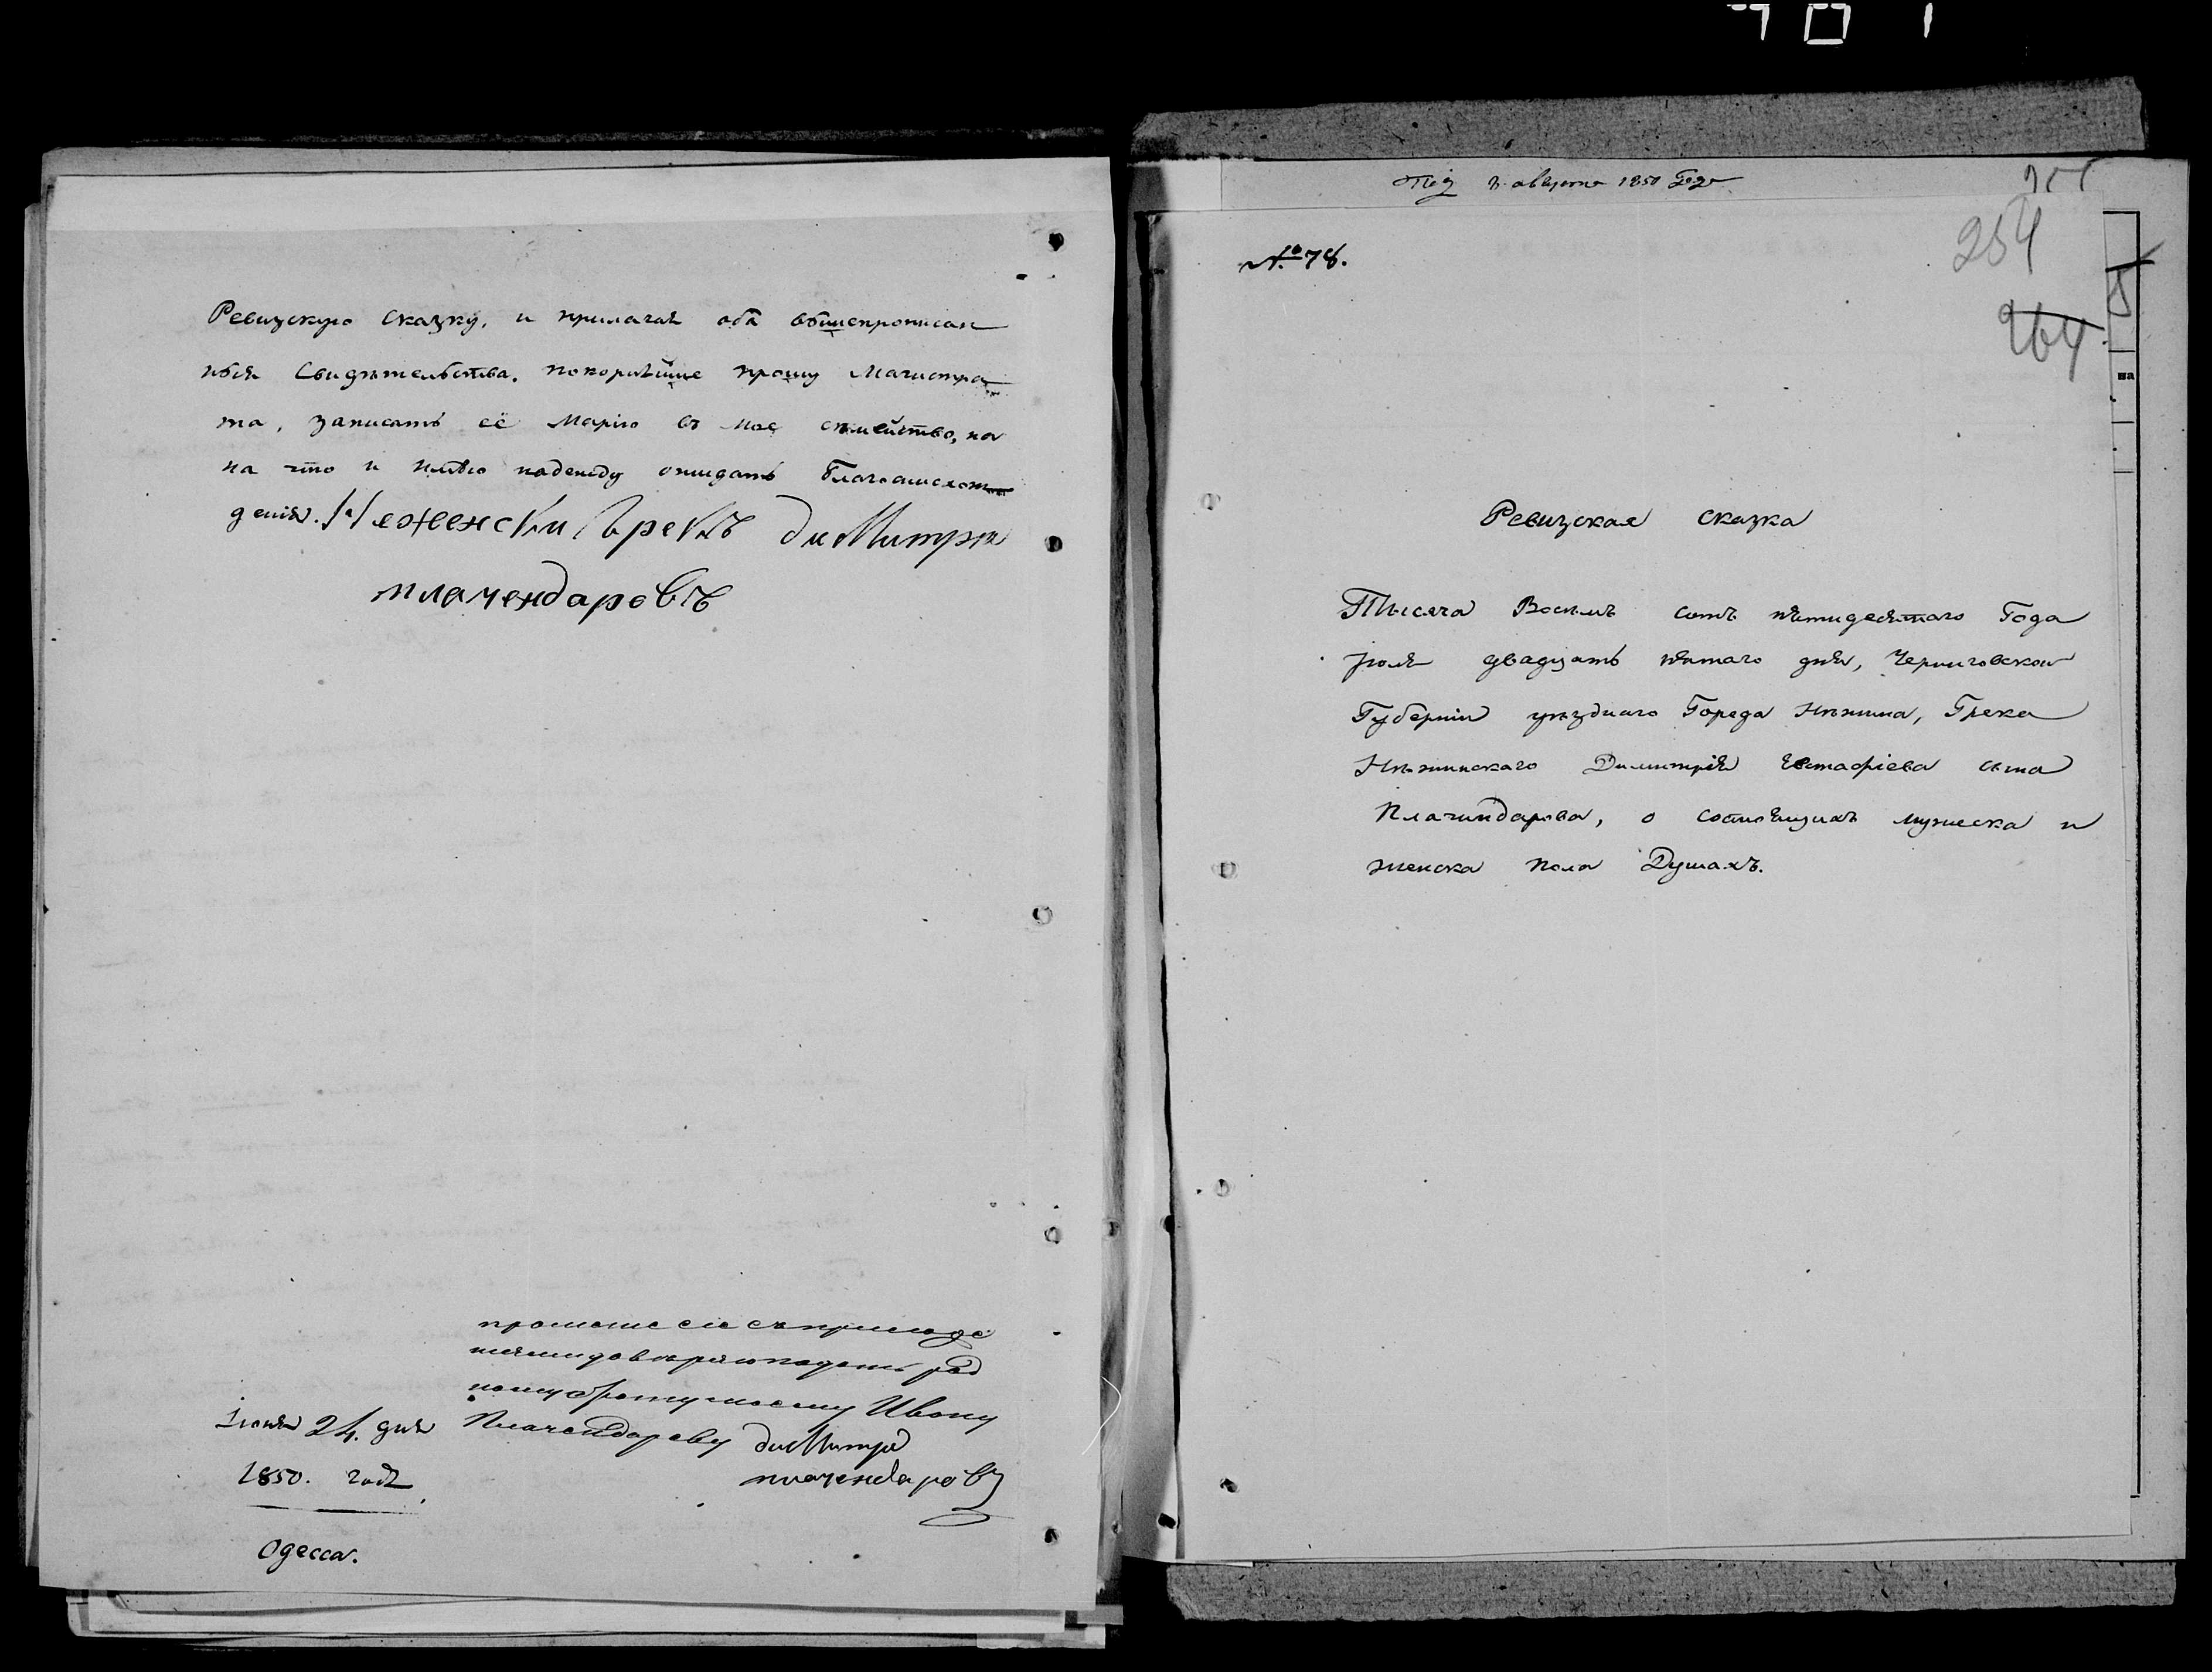 Ревизскую сказку, и прилагая оба вышепрописан
ныя Свидѣтельства, покорнѣйше прошу Магистра
та, записать её Марію въ мое сѣмейство, на
на что и имѣю надежду ожидать благоснисхож
денія. Неженски Грекъ диМитри
плачендаровъ
прошение сіе
довѣряю подать род
ному брату моему Ивану
Плачендарову диМитри
плачендаровъ
Іюня 24. дня
1850. года
Одесса.
августа 1850 Года
254
264
№ 78.
на
Ревизская сказка
Тысяча Восемь сотъ пятидесятаго Года
Іюля двадцать пятаго дня, Черниговской
Губерніи уѣзднаго Города Нѣжина, Грека
Нѣжинскаго Димитрія Евстафіева сына
Плачиндарова, о состоящихъ мужеска и
женска пола Душахъ.